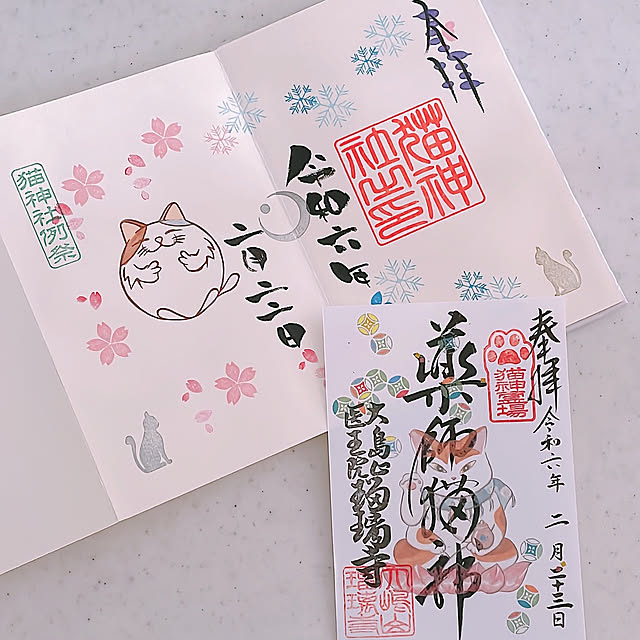 奉拝
猫神
社之印
令和六年
二月二二日
猫神社例祭
奉拝
令和六年 二月二十三日
猫神霊場
薬師猫神
大島山
医王院
瑠璃寺